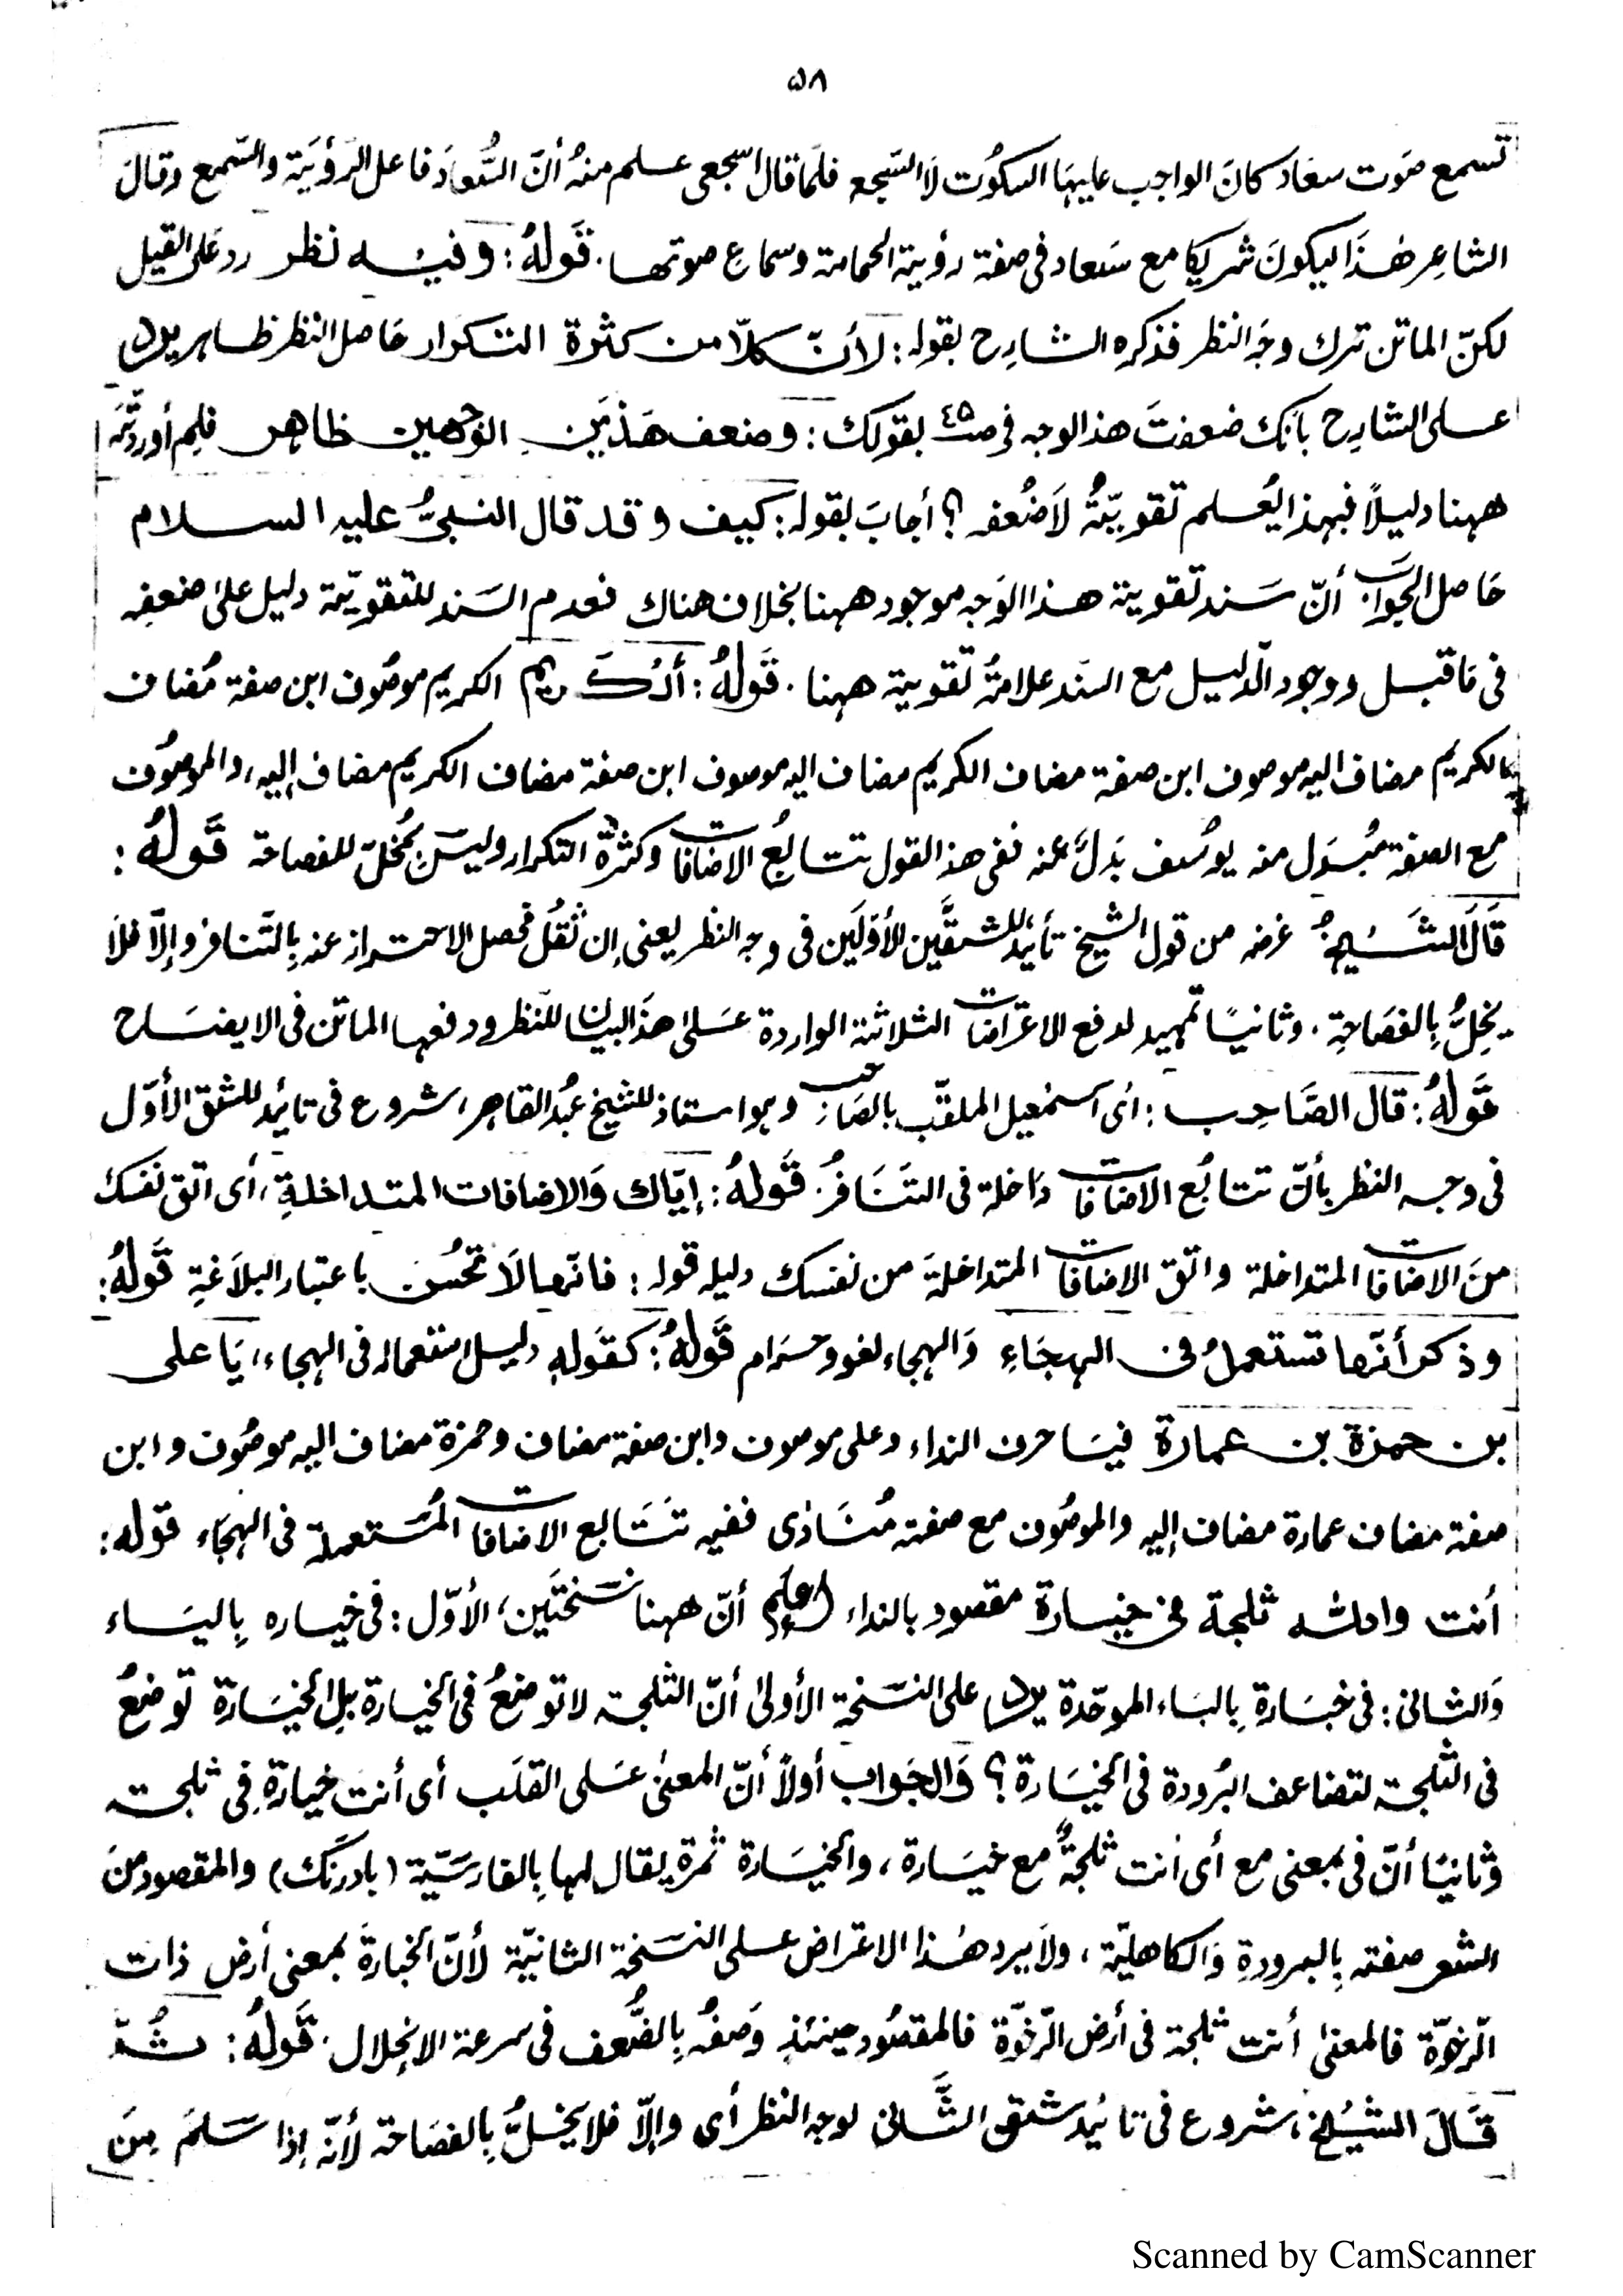 ٥٨
تسمع صَوت سعَاد كانَ الواجب عليهَا السكُوت لَا السّجعه فلمّا قال اسجعى علم منهُ أنّ السُّعادَ فاعل الرؤيَة والسّمع وقالَ
الشاعِر هٰذَا ليكونَ شريكا مع سَعاد فى صفة رؤية الحمامة وسماعِ صوتها. قَولهُ: وفيْـه نظر رد على القيل
لكنّ الماتن ترك وجَه النظر فذكره الشارِح بقوله: لأنّ كلّا من كثرة التكرار حَاصل النظر ظاهر يرد
على الشارِح بانك ضعفتَ هذ الوجه فى صـ٤٥ بقولك: وضعف هَذَينِ الوَجهين ظاهر فلِم أوردتَّهَ
ههنا دليلًا فبهذا يُعلم تقويّتهُ لَا ضُعفه؟ أجابَ بقوله: كيف وقد قال النبىُّ عليه السلام
حَاصل الجوَابَ أنّ سَند تقوية هذا الوَجه موجود ههنا بخلاف هناك فعدم السَند للتقويّة دليل علىٰ ضعفِه
فى مَا قبل ووجود الّدليل مع السَند علامةُ تقوية ههنا. قَولهُ: أىْ كَريم الكريم موصُوف ابن صفة مُضاف
الكريم مضاف اليه موصوف ابن صفة مضاف الكريم مضاف اليه موصوف ابن صفة مضاف الكريم مضاف إليه، والموصُوف
مع الصفة مُبدَل منه يوسُف بَدلٌ عنه ففى هذ القول تتابُع الاضَافات وكثرةُ التكرار وليسَ بمُخلّ للفصاحة قَولهُ:
قَالَ الشَّيخُ غرضه من قول الشيخ تأييدٌ للشقَّين الأوّلَين فى وجه النظر يعنى إن ثقُلَ فحصل الاحتراز عنه بِالتّنافر وإلّا فلَا
يخِلُّ بِالفصَاحةِ. وثانيًا تمهيد لدفع الاعتراضات الثلاثة الواردة عَلىٰ هذَ البيان للنظر ودفعها الماتن فى الايضَاح
قَولهُ: قال الصَّاحِب: أى اسمٰعيل الملقّب بالصَاحب وهو استاذ للشيخ عبُد القاهر، شروع فى تائيد للشق الأوّل
فى وجه النظر بأنّ تتابُع الاضَافات دَاخلة فى التنَافُر. قَولهُ: إيّاك وَالاضافات المتداخلةِ، أى اتق نفسَك
منَ الاضَافات المتداخلة واتق الاضَافات المتداخلةَ من نفسك دليله قوله: فانّها لَا تحُسُن باعتبار البلَاغةِ قَولهُ:
وذكر أنّها تستعملُ فى الهِجَاءِ وَالهجاء لغو وحرَام قَولهُ: كقَولهٖ دليل استعماله فى الهجاء، يَا على
بن حمزة بن عمارة فيَا حرف النداء وعلى موصوف وابن صفة مضاف وحمزة مضاف اليه موصُوف وابن
صفة مضاف عمارة مضاف إليه والموصُوف مع صفته مُنَادٰى ففيه تتَابع الاضَافات المُستعملة فى الهجَاء قوله:
أنت والله ثلجة فى خيارة مقصود بالنداء اعلم أنّ ههنا نسَختَين، الأوّل: فى خياره بِاليَاء
وَالثانى: فى خبَارة بِالبَاء الموحّدة يرد على النسَخة الأولىٰ أنّ الثلجة لا توضَعُ فى الخيارة بلِ الخيَارة توضَعُ
فى الثلجة لتضاعف البُرودة فى الخيَارة؟ وَالجَواب أولًا أنّ المعنىٰ عَلى القلَب أى أنت خيارة فِى ثلجة
وثانيًا أنّ فى بمعنى مع أى أنت ثلجةٌ مع خيَارة، والخيَارة ثمرة يقال لها بِالفارسَيّة (بادرَنگ) والمقصود منَ
الشعر صفته بِالبرودةِ وَالكاهليّة، ولَا يرد هٰذا الاعتراض على النسَخة الثانيّة لأنّ الخبارةَ بمعنى أرض ذات
الّرخوّة فالمعنىٰ أنت ثلجة فى أرض الّرخوّة فالمقصُود حينئذٍ وَصفُه بِالضُّعف فى سرعة الانحِلال. قَولهُ: ثُمّ
قَالَ الشَيْخ، شروع فى تائيد شق الثَّانى لوجه النظر أى وإلّا فلا يخلُّ بِالفصَاحة لأنّه إذا سَلمَ مِنَ
Scanned by CamScanner